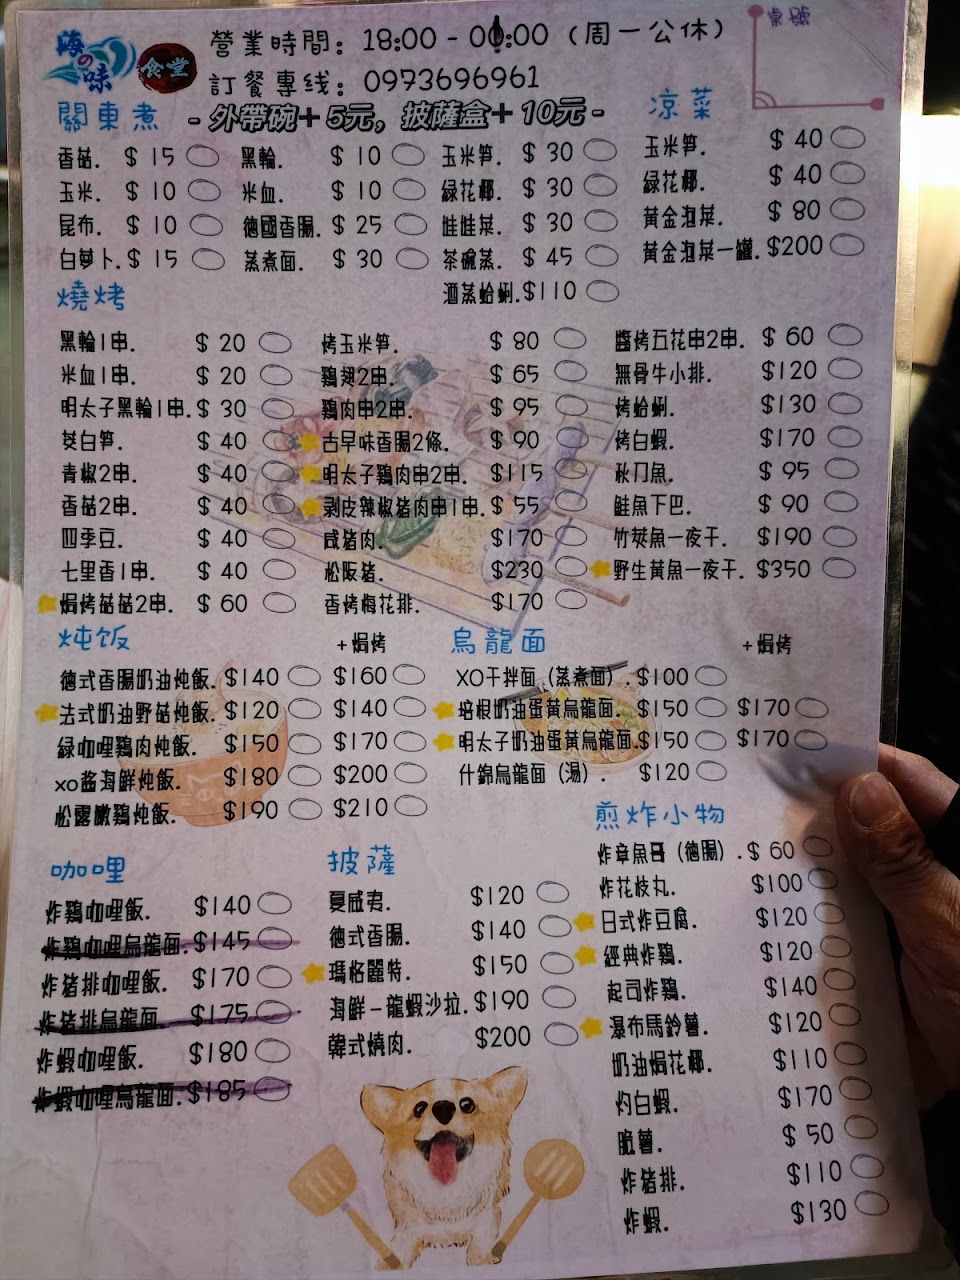 海の味 食堂
營業時間: 18:00 - 00:00 (周一公休)
訂餐專线: 0973696961
桌號
- 外帶碗+5元, 披薩盒+10元 -
關東煮
香菇. $ 15
玉米. $ 10
昆布. $ 10
白萝卜. $ 15
黑輪. $ 10
米血. $ 10
德國香腸. $ 25
蒸煮面. $ 30
玉米笋. $ 30
緑花椰. $ 30
娃娃菜. $ 30
茶碗蒸. $ 45
酒蒸蛤蜊. $110
凉菜
玉米笋. $ 40
緑花椰. $ 40
黃金泡菜. $ 80
黃金泡菜一罐. $200
燒烤
黑輪1串. $ 20
米血1串. $ 20
明太子黑輪1串. $ 30
茭白笋. $ 40
青椒2串. $ 40
香菇2串. $ 40
四季豆. $ 40
七里香1串. $ 40
焗烤菇菇2串. $ 60
烤玉米笋. $ 80
鷄翅2串. $ 65
鷄肉串2串. $ 95
古早味香腸2條. $ 90
明太子鷄肉串2串. $115
剥皮辣椒猪肉串1串. $ 55
咸猪肉. $170
松阪猪. $230
香烤梅花排. $170
醬烤五花串2串. $ 60
無骨牛小排. $120
烤蛤蜊. $130
烤白蝦. $170
秋刀魚. $ 95
鮭魚下巴. $ 90
竹莢魚一夜干. $190
野生黃魚一夜干. $350
炖饭 +焗烤
德式香腸奶油炖飯. $140 $160
法式奶油野菇炖飯. $120 $140
緑咖哩鷄肉炖飯. $150 $170
xo酱海鮮炖飯. $180 $200
松露嫩鷄炖飯. $190 $210
烏龍面 +焗烤
XO干拌面 (蒸煮面) . $100
培根奶油蛋黃烏龍面. $150 $170
明太子奶油蛋黃烏龍面. $150 $170
什錦烏龍面 (湯) . $120
咖哩
炸鷄咖哩飯. $140
炸鷄咖哩烏龍面. $145
炸猪排咖哩飯. $170
炸猪排烏龍面. $175
炸蝦咖哩飯. $180
炸蝦咖哩烏龍面. $185
披薩
夏威夷. $120
德式香腸. $140
瑪格麗特. $150
海鮮－龍蝦沙拉. $190
韓式燒肉. $200
煎炸小物
炸章魚哥 (德腸) . $ 60
炸花枝丸. $100
日式炸豆腐. $120
經典炸鷄. $120
起司炸鷄. $140
瀑布馬鈴薯. $120
奶油焗花椰. $110
灼白蝦. $170
脆薯. $ 50
炸猪排. $110
炸蝦. $130